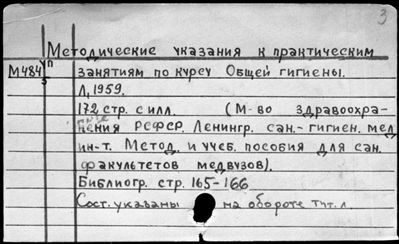 3
Методические указания к практическим
М484 уп занятиям по курсу Общей гигиены.
Л, 1959.
172 стр. с илл. (М-во здравоохра-
нения РСФСР. Ленингр. сан.-гигиен. мед
ин-т. Метод. и учеб. пособия для сан.
факультетов медвузов).
Библиогр. стр. 165-166
Сост. указаны на обороте тит. л.